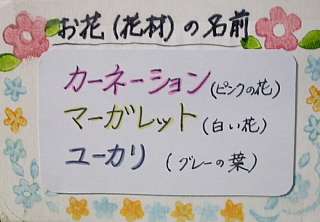 お花(花材)の名前
カーネーション(ピンクの花)
マーガレット(白い花)
ユーカリ(グレーの葉)